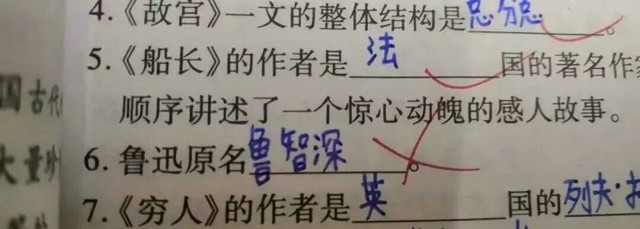 4.《故宫》一文的整体结构是总分总。
5.《船长》的作者是法国的著名作家
国古代
顺序讲述了一个惊心动魄的感人故事。
大量珍
6.鲁迅原名鲁智深。
7.《穷人》的作者是英国的列夫·托